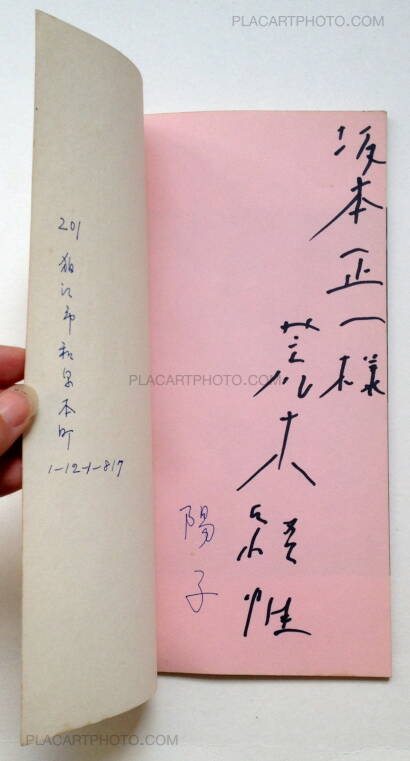 PLACARTPHOTO.COM
坂本正一様
荒木経惟
陽子
201
狛江市和泉本町
1-12-1-817
PLACARTPHOTO.COM
PLACARTPHOTO.COM